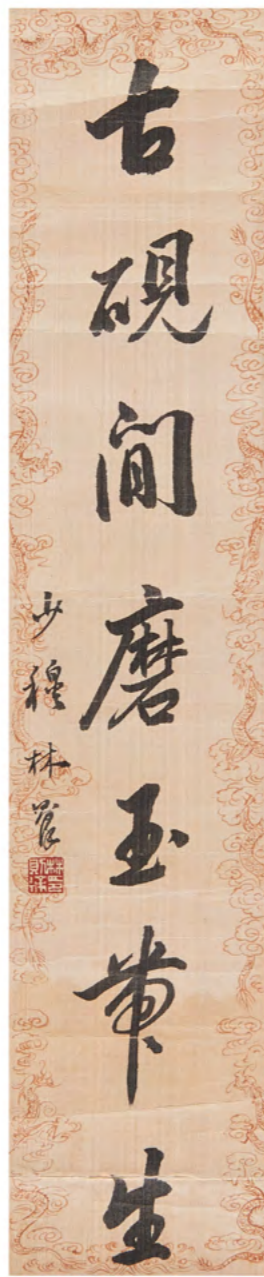 古硯閒磨玉帶生
少穆林則徐